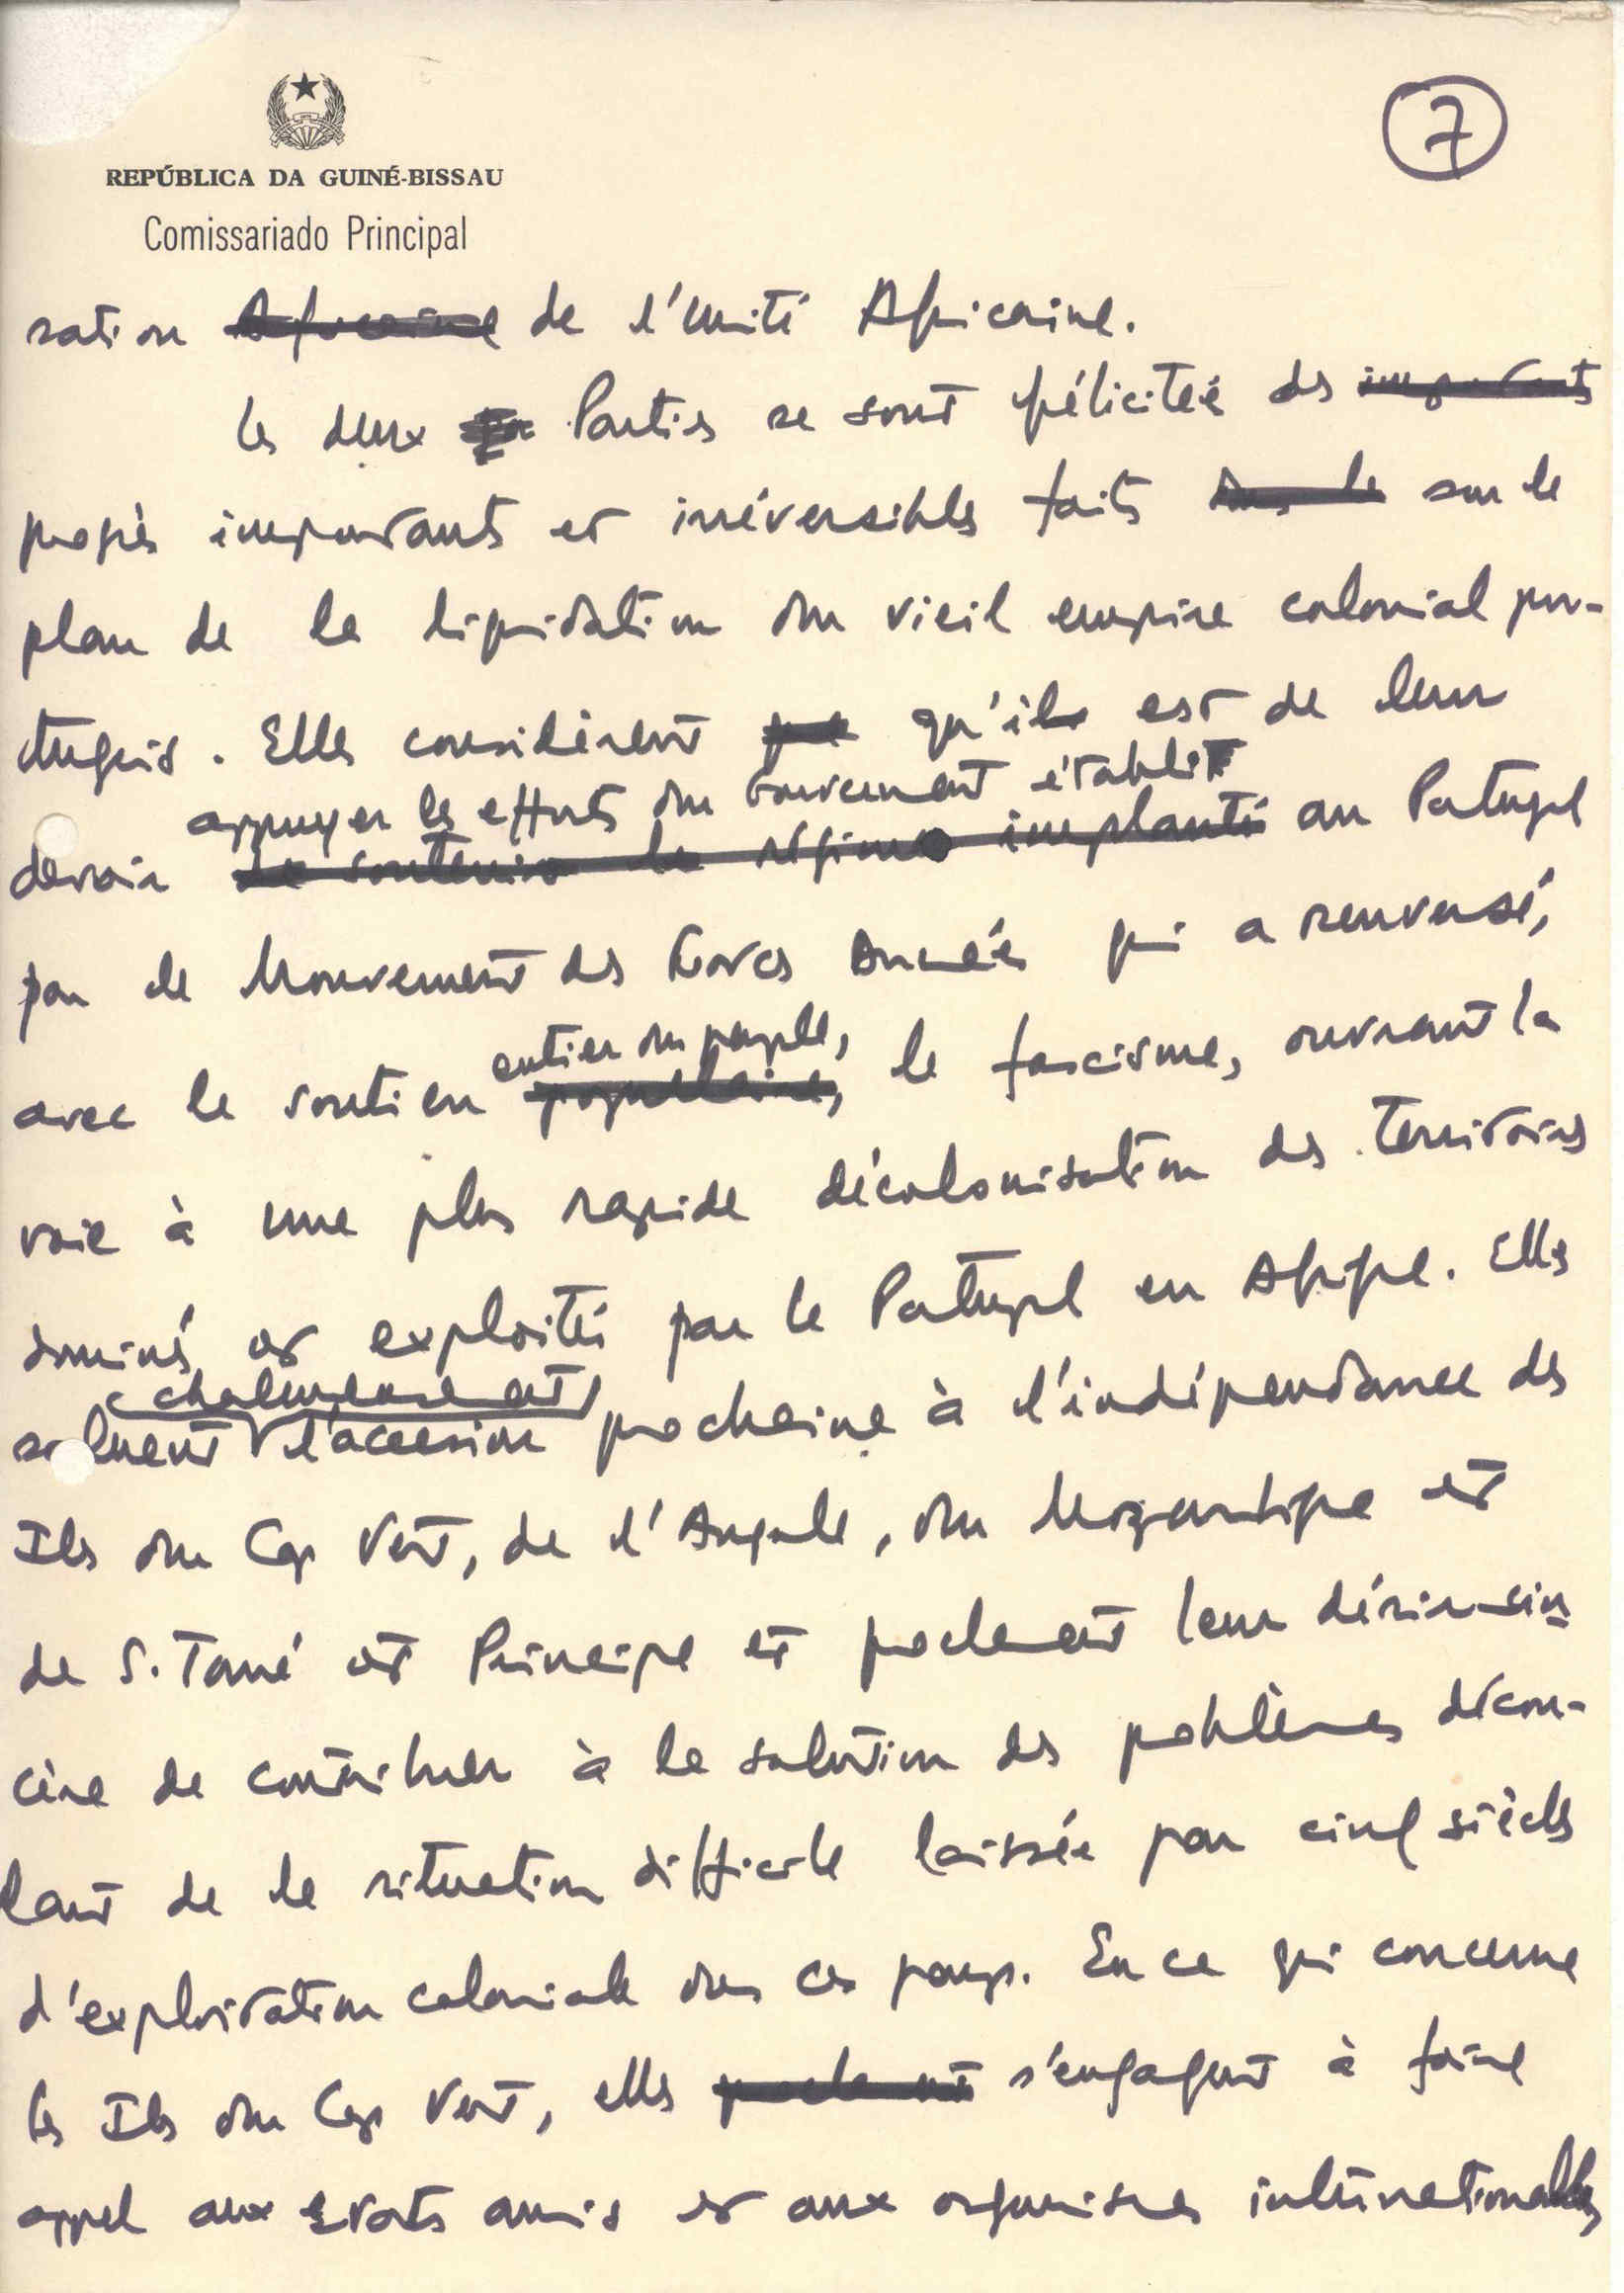 7
REPÚBLICA DA GUINÉ-BISSAU
Comissariado Principal
sation Africaine de l'Unité Africaine.
Les deux Parties se sont félicitées des importants
progrès importants et irréversibles faits dans le sur le
plan de la liquidation du vieil empire colonial por-
tugais. Elles considèrent que qu'il est de leur
appuyer les efforts du Gouvernement établi
devoir de soutenir le régime implanté au Portugal
par le Mouvement des Forces Armées qui a renversé,
entier du peuple,
avec le soutien populaire, le fascisme, ouvrant la
voie à une plus rapide décolonisation des territoires
dominés et exploités par le Portugal en Afrique. Elles
chaleureusement
saluent l'accession prochaine à l'indépendance des
Iles du Cap Vert, de l'Angola, du Mozambique et
de S. Tomé et Principe et proclament leur désir sin
cère de contribuer à la solution des problèmes décou-
lant de la situation difficile laissée par cinq siècles
d'exploitation coloniale dans ces pays. En ce qui concerne
les Iles du Cap Vert, elles proclament s'engagent à faire
appel aux Etats amis et aux organismes internationales